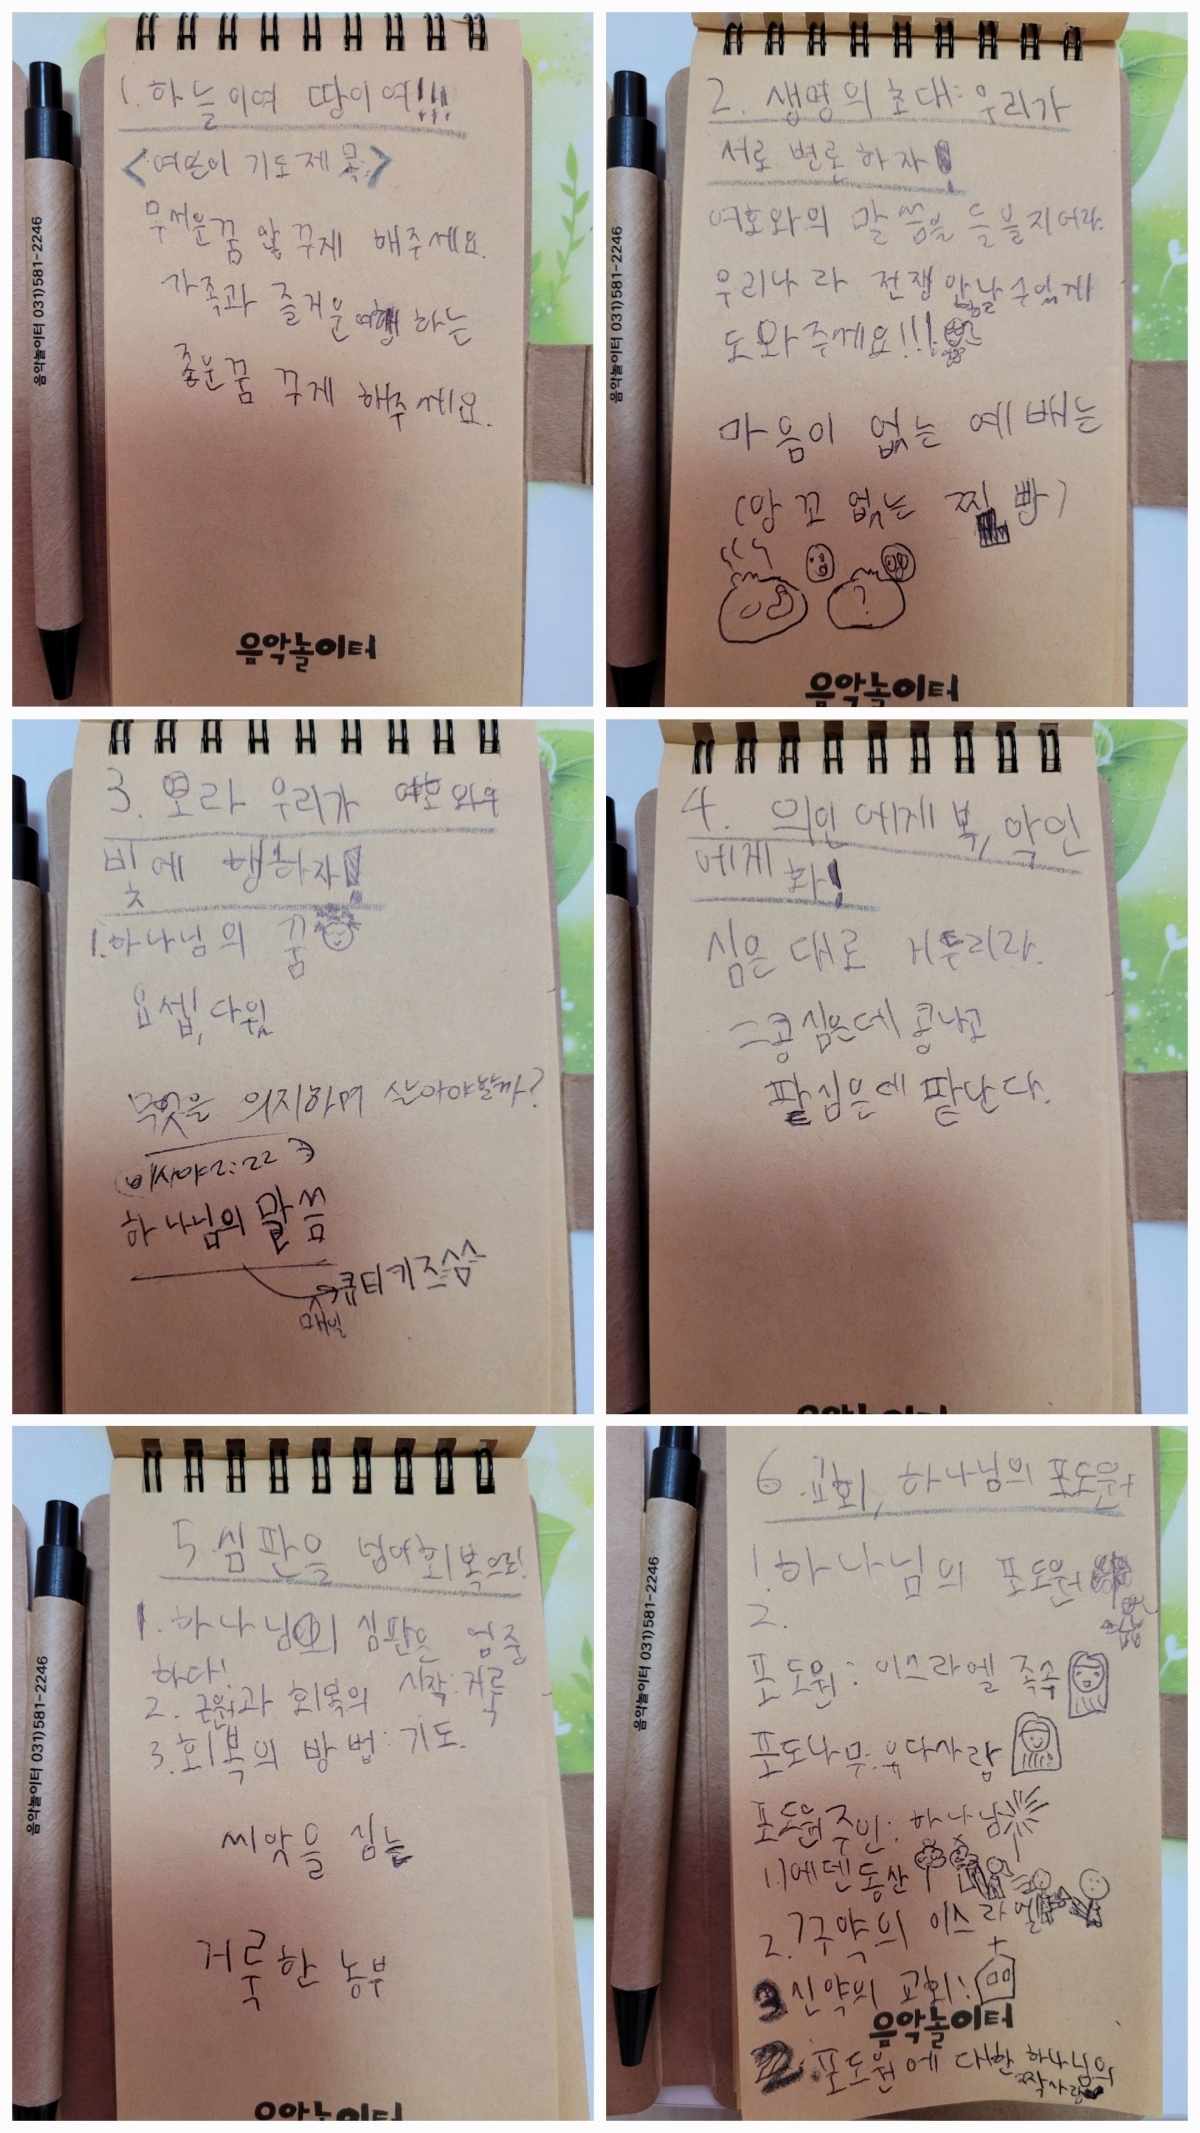 음악놀이터 031)581-2246
1. 하늘이여 땅이여!!!
<여인이 기도제목>
무서운꿈 않꾸게 해주세요.
가족과 즐거운 여행 하는
좋은꿈 꾸게 해주세요.
음악놀이터
음악놀이터 031)581-2246
2. 생명의 초대: 우리가
서로 변론하자!
여호와의 말씀을 들을지어다.
우리나라 전쟁 안날 수있게
도와주세요!!!
마음이 없는 예배는
(앙꼬 없는 찐빵)
?
음악놀이터
3. 오라 우리가 여호와의
빛에 행하자!
1. 하나님의 꿈
요셉, 다윗
무엇을 의지하며 살아야할까?
이사야2:22
하나님의 말씀
큐티키즈
매일
4. 의인에게 복, 악인
에게 화!
심은 대로 거두리라.
=콩심은데 콩나고
팥심은데 팥난다.
음악놀이터
음악놀이터 031)581-2246
5. 심판을 넘어 회복으로!
1. 하나님의 심판은 엄중
하다!
2. 구원과 회복의 시작: 거룩
3. 회복의 방법: 기도.
씨앗을 심는
거룩한 농부
음악놀이터
음악놀이터 031)581-2246
6. 교회, 하나님의 포도원
1. 하나님의 포도원
2.
포도원: 이스라엘 족속
포도나무: 유다사람
포도원주인: 하나님
1.)에덴동산
2. 구약의 이스라엘
3 신약의 교회!
음악놀이터
2. 포도원에 대한 하나님의
짝사랑